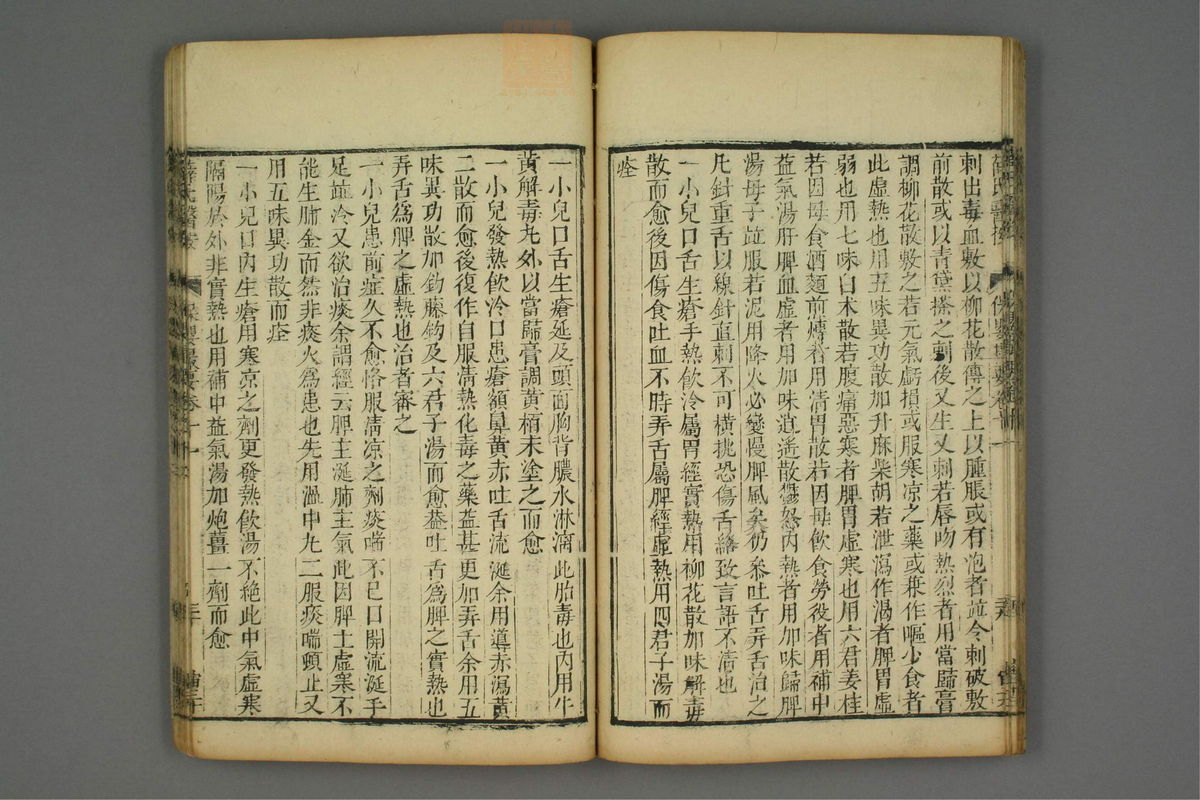 刺出毒血敷以柳花散傳之上以腫脹或有泡者並令刺破敷
前散或以青黛搽之刺後又生又刺若唇吻熱烈者用當歸膏
調柳花散敷之若元氣虧損或服寒凉之藥或兼作嘔少食者
此虛熱也用五味異功散加升麻柴胡若泄瀉作渴者脾胃虛
弱也用七味白朮散若腹痛惡寒者脾胃虛寒也用六君姜桂
若因母食酒麵煎煿者用清胃散若因母飲食勞役者用補中
益氣湯肝脾血虛者用加味逍遙散鬱怒內熱者用加味歸脾
湯母子並服若泥用降火必變慢脾風矣仍叅吐舌弄舌治之
凡針重舌以線針直刺不可橫挑恐傷舌絡致言語不清也
一小兒口舌生瘡手熱飲冷屬胃經實熱用柳花散加味解毒
散而愈後因傷食吐血不時弄舌屬脾經虛熱用四君子湯而
痊
一小兒口舌生瘡延及頭面胸背膿水淋漓此胎毒也內用牛
黃解毒丸外以當歸膏調黃栢末塗之而愈
一小兒發熱飲冷口患瘡額鼻黃赤吐舌流涎余用導赤瀉黃
二散而愈後復作自服清熱化毒之藥益甚更加弄舌余用五
味異功散加鈎藤鈎及六君子湯而愈葢吐舌爲脾之實熱也
弄舌爲脾之虛熱也治者審之
一小兒患前症久不愈恪服清凉之劑痰喘不已口開流涎手
足並冷又欲治痰余謂經云脾主涎肺主氣此因脾土虛寒不
能生肺金而然非痰火爲患也先用溫中丸二服痰喘頓止又
用五味異功散而痊
一小兒口內生瘡用寒凉之劑更發熱飲湯不絕此中氣虛寒
隔陽於外非實熱也用補中益氣湯加炮薑一劑而愈
薛氏醫按